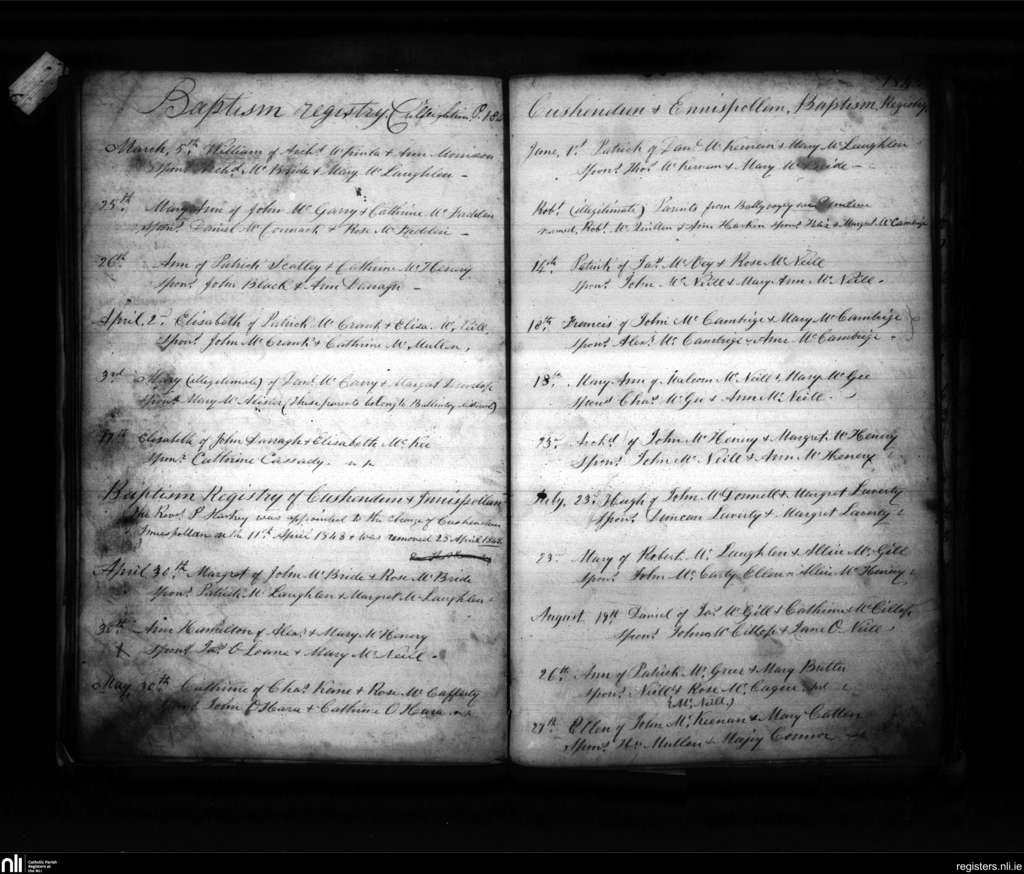 Baptism registry, Culfeightrin P. 18
March, 5th William of Archd McKinla & Ann Morrison
Sponrs Archd McBride & Mary McLaughlen
25th Mary Ann of John McGarry & Cathrine McFadden
Sponrs Daniel McCormack & Rose McFadden
26th Ann of Patrick Scalley & Cathrine McHenry
Sponrs John Black & Ann Darragh
April, 2nd Elisabeth of Patrick McCrank & Eliza McNeill
Sponrs John McCrank & Cathrine McMullen
3rd Mary (illegitimate) of Danl McCarry & Margret Dunlop
Sponrs Mary McAlister (These parents belong to Ballintoy district)
17th Elisabeth of John Darragh & Elisabeth McKee
Sponrs Cathrine Cassady
Baptism Registry of Cushendun & Innispollan
The Revd P Hickey was appointed to the charge of Cushendun
Innispollan on the 11th April 1848 & was removed 25 April 1848
April 30th Margret of John McBride & Rose McBride
Sponrs Patrick McLaughlen & Margret McLaughlen
30th Ann Hamilton of Alexr & Mary McHenry
Sponrs Jas O Loane & Mary McNeill
May, 30th Cathrine of Chas Kane & Rose McCafferty
Sponrs John O'Hara & Cathrine O'Hara
Cushendun & Ennispollan, Baptism Registry
June, 1st Patrick of Danl McKernan & Mary McLaughlen
Sponrs Thos McKernan & Mary McBride
Robt (illegitimate) Parents from Ballyregly
named, Robt McQuillen & Ann Harkin Sponrs & Margret McCambrige
14th Patrick of Jas McVey & Rose McNeill
Sponrs John McNeill & Mary Ann McNeill
18th Francis of John McCambrige & Mary McCambrige
Sponrs Alexr McCambrige & Ann McCambrige
18th Mary Ann of Malcom McNeill & Mary McGee
Sponrs Chas McGee & Ann McNeill
25 Archd of John McHenry & Margret McHenry
Sponrs John McNeill & Ann McHenry
July, 23rd Hugh of John McDonnell & Margret Laverty
Sponrs Duncan Laverty & Margret Laverty
23 Mary of Robert McLaughlen & Allice McGill
Sponrs John McCarty Ellen or Allice McHenry
August 19th Daniel of Jas McGill & Cathrine McCillop
Sponrs John McCillop & Jane O Neill
26th Ann of Patrick McGreer & Mary Butter
Sponrs Neill & Rose McCague
(McNeill)
27th Ellen of John McKeenan & Mary Cullen
Sponrs Hu Mullen & Majry Connor
nli
Catholic Parish
Registers at
the NLI
registers.nli.ie